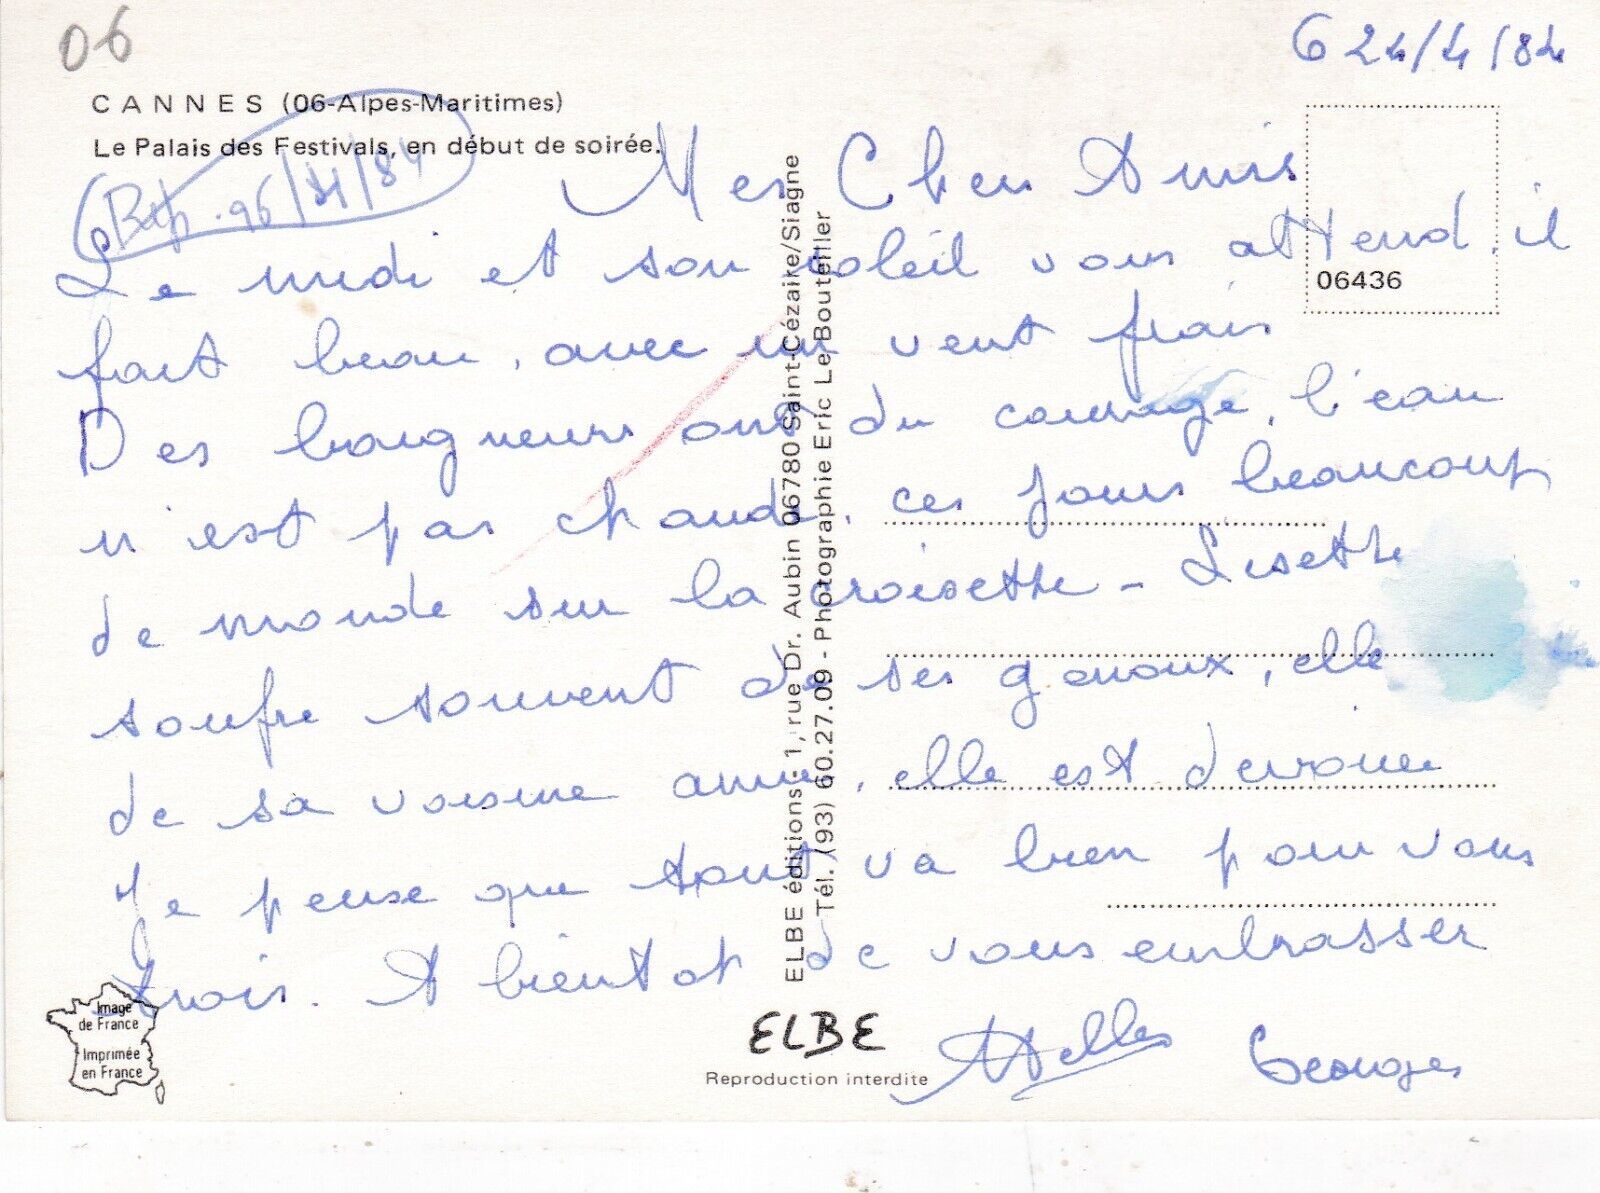 06
C 24/4/84
CANNES (06-Alpes-Maritimes)
Le Palais des Festivals, en début de soirée.
Rep. 96/4/84
Mes Chers Amis
Le midi et son soleil vous attend, il
fait beau, avec un vent frais
Des baigneurs ont du courage, l'eau
n'est pas chaude, ces jours beaucoup
de monde sur la croisette - Lisette
soufre souvent de ses genoux, elle
de sa voisine amie, elle est devouee
Je pense que tout va bien pour vous
trois. A bientot de vous embrasser
Georges
06436
ELBE éditions - 1, rue Dr. Aubin 06780 Saint-Cézaire/Siagne
Tél. (93) 60.27.09 - Photographie Eric Le Bouteiller
Image
de France
Imprimée
en France
ELBE
Reproduction interdite